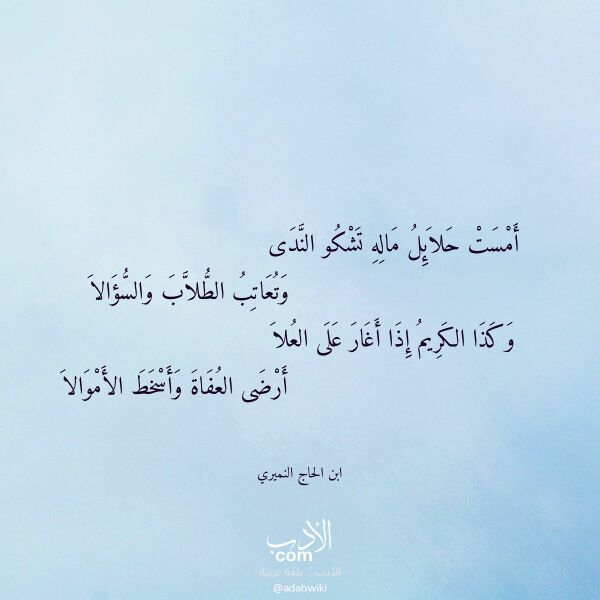 أَمْسَتْ حَلاَئِلُ مَالِهِ تَشْكُو النَّدَى
وَتُعَاتِبُ الطُّلاَّبَ وَالسُّؤَالاَ
وَكَذَا الكَرِيمُ إِذَا أَغَارَ عَلَى العُلاَ
أَرْضَى العُفَاةَ وَأَسْخَطَ الأَمْوَالاَ
ابن الحاج النميري
الأدب
com
الأدب .. بلغة عربية
@adabwiki